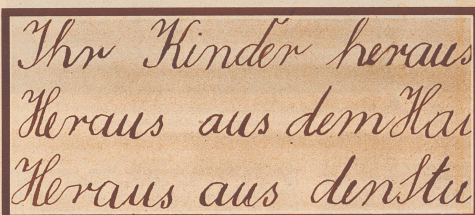 Ihr Kinder heraus
Heraus aus dem Hau
Heraus aus den Stu